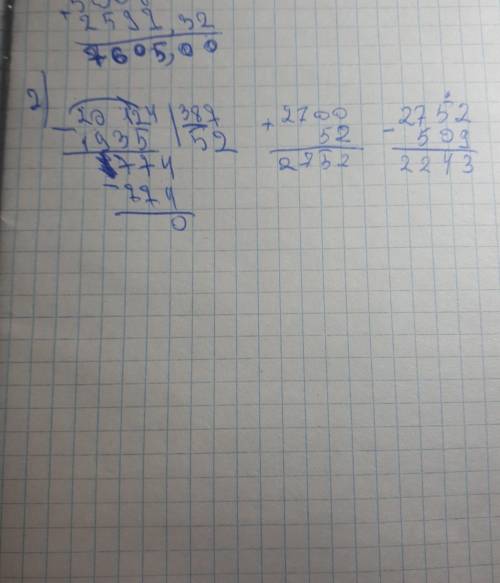 2599,32
7605,00
2)
20 124 | 387
- 1935 | 52
774
- 774
0
2700
+ 52
2752
2752
- 509
2243